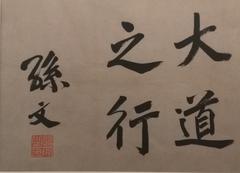 大道
之行
孫文